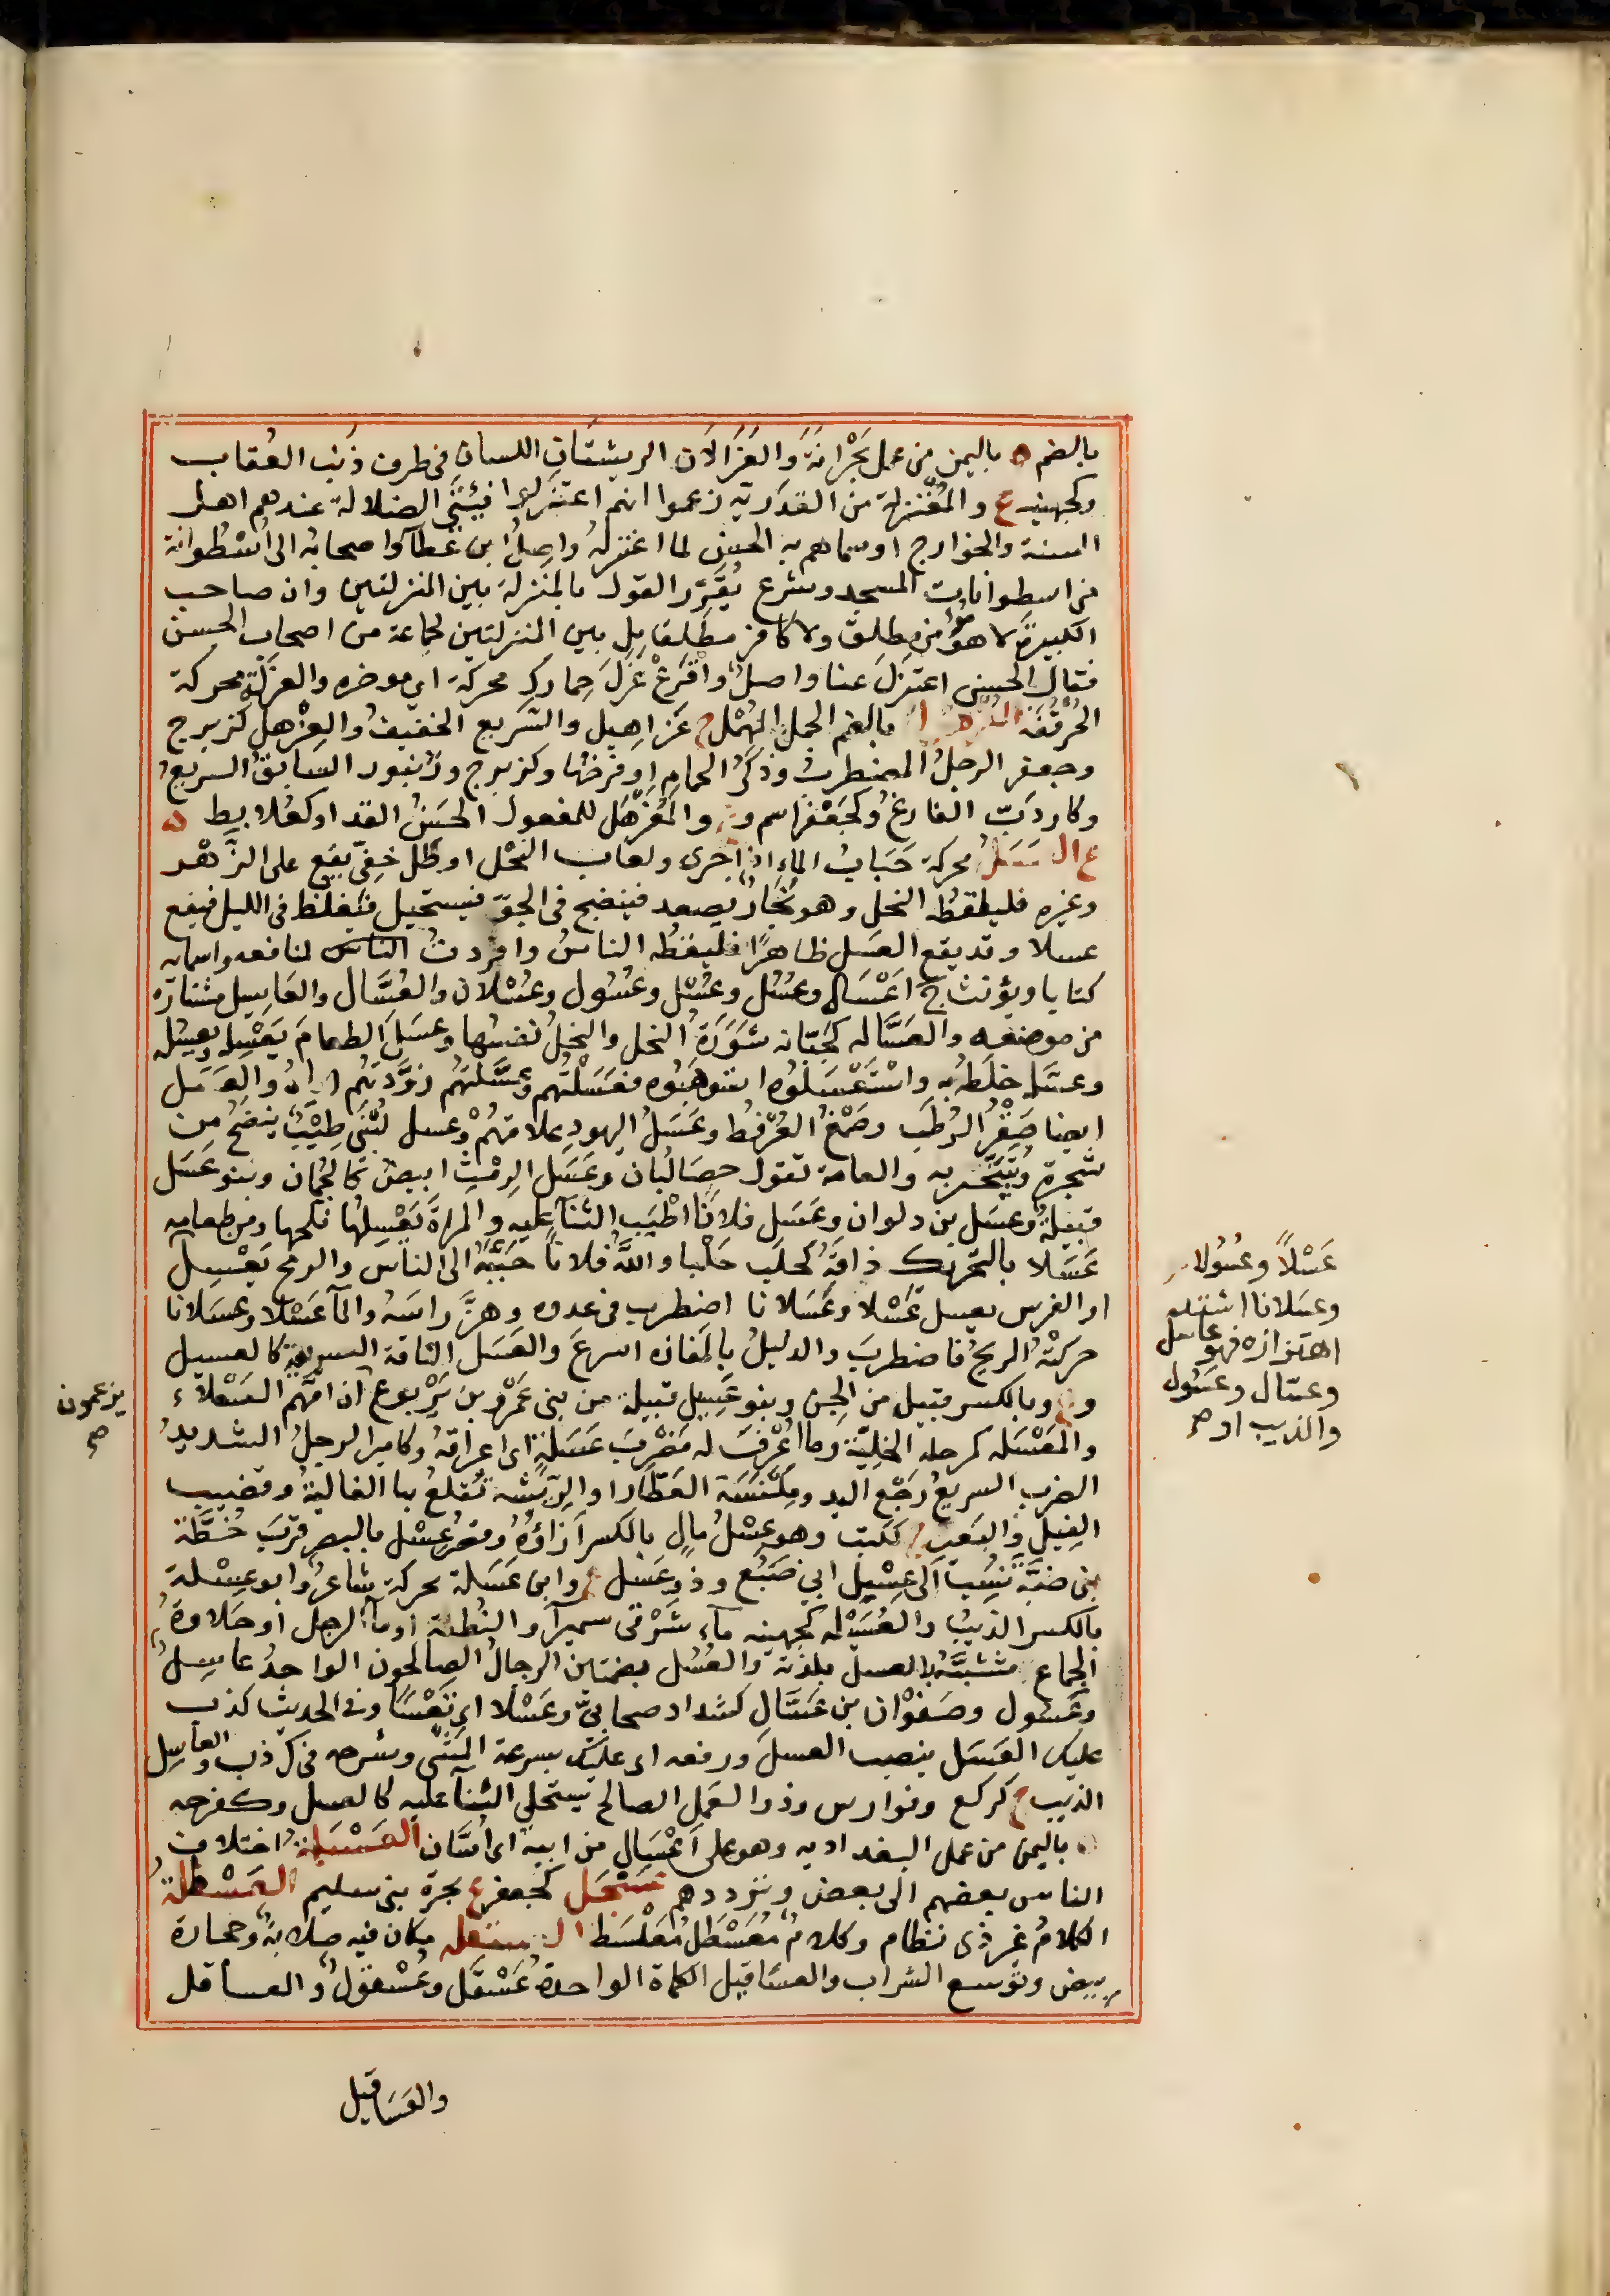 بالضم ه باليمن من عمل بَحْرانَةَ والعَزَّالان الريشتان اللسان في طرف ذنب العقاب
وكجهينه ع والمُعْتَزِلَة من القَدَرِيّه زعموا انهم اعتزلوا فئتي الضلالة عندهم اهل
السنة والخوارج او سماهم به الحسن لما اعتزله واصل ابن عطاء واصحابه الى اُسْطُوانة
من اسطوانات المسجد وشرع يُقَرِّر القول بالمنزلة بين المنزلتين وان صاحب
الكبيرة لا مؤمن مطلق ولا كافر مطلق بل بين المنزلتين لجماعة من اصحاب الحسن
فقال الحسن اعتزل عنا واصل واقرع عَزَلَ حمارك محركة اى موخره والعَزَلَة محركة
الحَرْقَفَة العُزْهُل بالضم الجمل المُهْمَل ج عَزاهيل والسريع الخفيف والعِزْهِل كزبرج
وجعفر الرجل المضطرب وذكر الحمام او فرخها وكزبرج وزنبور السابق السريع
وكاردَبّ الفارغ وكجَعْفَر اسم و ع والمُعَزْهَل للمفعول الحَسَن الغذا وكعلابط ه
ع العَسَل محركة حَبَاب الماء اذا جرى ولعاب النحل او طل خفيّ يقع على الزَّهْر
وغيره فليلقطه النحل وهو بُخار يصعد فينضج في الجوّ فيستحيل فيغلظ في الليل فيقع
عسلا وقد يقع العسل ظاهرًا فليقطه الناس وافردت الناس لمنافعه واسمائه
كتابا ويؤنث ج اَعْسَال وعُسُل وعُسْل وعُسُول وعُسْلان والعَسَّال والعاسِل مشتارّه
من موضعه والعَسَّاله كجَبَّانه شَوْرَة النحل والنحل نفسها وعسل الطعام يَعْسِله ويعسُله
وعسّله خلطه به واسْتَعْسَلُوه استوهبوه فعَسَلْتهم وعَسَّلْتهم زوّدتهم اياه والعَسَل
ايضا صَقْر الرُطَب وصَمْغ العُرْفُط وعَسَل اليهود علامتهم وعسل لُبْنَى طِيْبٌ ينضح من
شجرة ويُتبخّر به والعامة تقول حصالُبان وعَسَل الرِمْث ابيض كالجُمان وبنو عَسَل
قبيلة وعسَل بن ذكوان وعَسَل فلانًا اطيب الثنا عليه والمراة يَعْسِلها نكحها ومن طعامه
عَسَلا بالتحريك ذاقَهُ كحَلَب حَلْبا والله فلانا حَبَّبَه الى الناس والرمح يَعْسِل
او الفرس يعسل عَسْلا وعَسَلانا اضطرب في عدوه وهزّ راسه والمآ عَسْلا وعسلانا
حركته الريح فاضطرب والدليل بالمفازه اسرع والعَسَل الناقة السريعة كالعسيل
و ع وبالكسر قبيل من الجن وبنو عِسِيل قبيلة من بنى عَمْرو بن يَرْبوع ان امّهم السعلاء
والمَعْسَله كمرحله الخليّة وما اعْرِف له مَضْرِبَ عَسَلَةٍ اى اعراقه وكامير الرجل الشديد
الضرب السريع رَجْع اليد ومِكْنَسَة العَطّار او الريشه تُقلعُ بها الغالية وقضيب
الفيل والبعير ج ككتب وهو عِسْلُ مالٍ بالكسر ازاؤه وقصر عِسْل بالبصر قرب خُطَّة
بنى ضَبَّة نُسِب الى عِسْل ابي صَبِيْع وذو عَسَل ع وابن عَسَلة محركة شاعر وابو عِسْلة
بالكسر الذيب والعُسَيْله كجهينه ماء شَرْقى سميرآ والنُطْفة او مآ الرجل او حلاوة
الجماع مشبّه بالعسل بلذته والعُسُل بضمتين الرجال الصالحون الواحد عاسِل
وعَسُول وصَفْوان بن عَسَّال كشداد صحابيّ وعَسْلا اى تَعْسًا وفي الحديث كذب
عليك العَسَل بنصب العسل ورفعه اى عليك بسرعة المَشْى وشرحه في ك ذ ب والعاسِل
الذيب ج كركع وفوارس وذو العَمل الصالح يستحلى الثنا عليه كالعسل وكفرحه
ه باليمن من عمل البغداديه وهو على اَعْسَال من ابيه اى آسَان العَسْبَلَة اختلاف
الناس بعضهم الى بعض وترددهم عَسْجَل كجعفر ع بحرة بنى سليم العَسْطَلة
الكلام غير ذى نظام وكلام مُعَسْطَل مُعَلْسَط العسقله مكان فيه صلابة وحجارة
بيض وتَوَسع السّراب والعَسَاقيل الكماة الواحدة عَسْقَل وعُسْقول والعساقل
والعَسَاقيل
عَسْلاً وعُسُولا
وعسلانا اشتد
اهتزازه فهو عاسل
وعسّال وعَسُول
والذيب او صح
يزعمون
صح